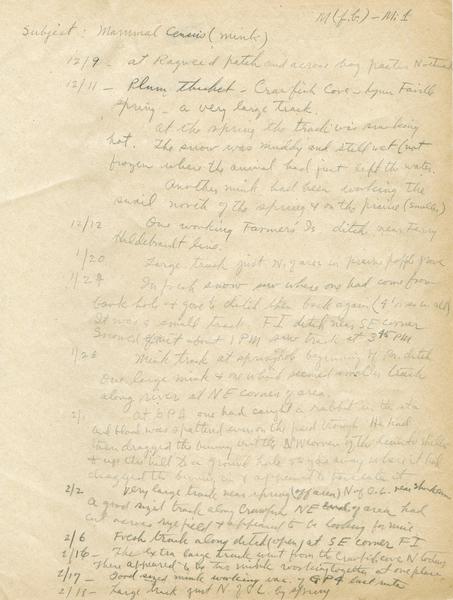 M(f.b.) - Mi 1
Subject: Mammal Census (mink)
12/9 - at Ragweed patch and across bay
12/11 - Plum thicket - Crawfish Cove - Lynn Faville
Spring - a very large track.
At the spring the track was smoking
hot. The snow was muddy and still wet (not
frozen where the animal had just left the water.
Another mink had been working the
north of the spring & on the prairie (smaller)
12/12 One working Farmer's Is. ditch, near
Hildebrandt line.
1/20 Large track just N. of area in prairie
In fresh snow saw where one had come from
bank hole & gone to ditch then back again
It was a small track. F I ditch near SE corner
Snowed quit about 1 PM saw track at 3 45 PM
Mink track at beginning of ditch
One large mink & one which seemed smaller track
along river at NE corner of area.
2/1 At GPA one had caught a rabbit in the
and blood was spattered even on the He had
then dragged the bunny out the NW corner of the
& up the hill to a ground hole away where it had
dragged the bunny in & appeared to it
2/2 Very large track near spring (off area) N of O.L. near
A good sized track along Crawfish NE of area had
cut across ryefield & appeared to be looking for mice
2/6 Fresh track along ditch (open) at SE corner F I
2/16 - The extra large track went from the Crawfish Cove N
There appeared to be two minks working together at one place.
2/17 - Good sized mink working vac. of GPA last nite
2/18 - Large track just N of O L by spring